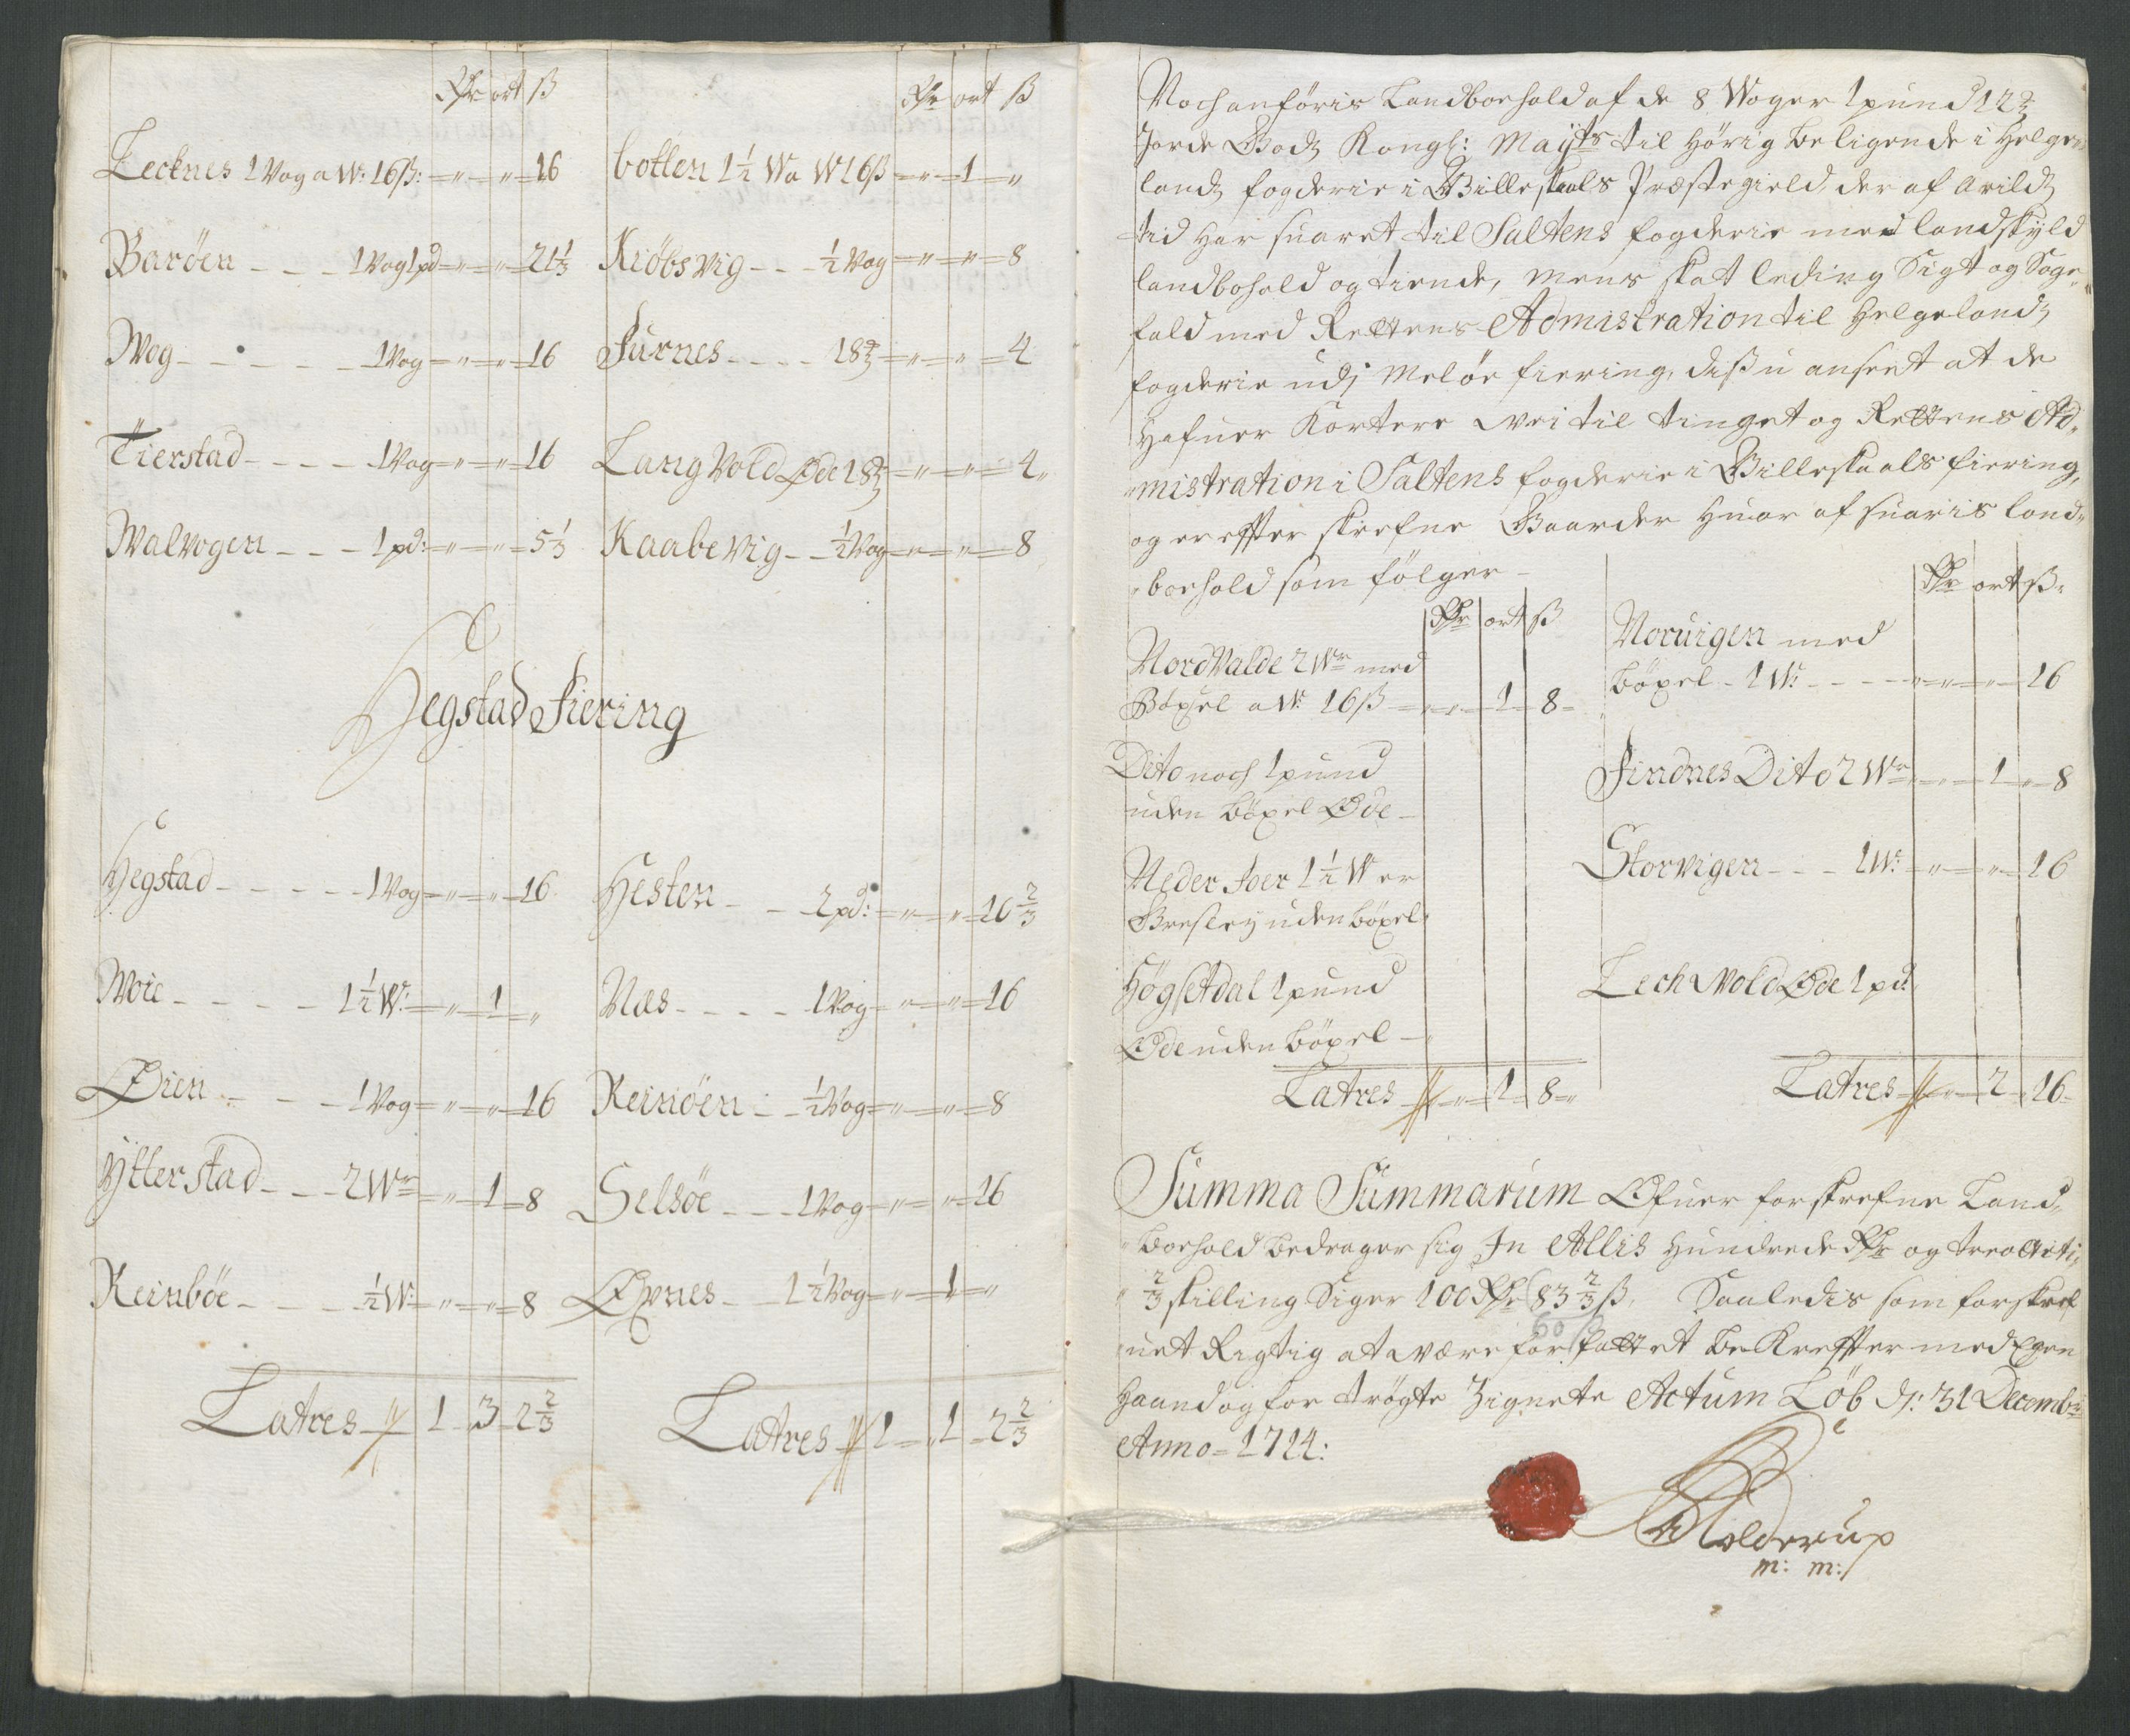 Rdr ort ß
Lecknes 1 Wog a W: 16 ß: = " = " = 16
Barøen - - - 1 Wog 1 pd = " = " = 21 1/3
Wog - - - - - 1 Wog = " = " = 16
Tierstad - - - - 1 Wog = " = " = 16
Walvogen - - - 1 pd: = " = " = 5 1/3
Rdr ort ß
botten 1 1/2 W a W 16 ß = " = 1 = "
Kiøbsvig - - - 1/2 Wog = " = " = 8
Furnes - - - - 18 = " = " = 4
Langvold Øde 18 = " = " = 4 "
Kaabevig - - 1/2 Wog = " = " = 8
Hegstad Fiering
Hegstad - - - - - 1 Wog = " = " = 16
Woie - - - - 1 1/2 W: = " = 1 = "
Øien - - - 1 Wog = " = " = 16
Ytterstad - - - 2 Wr = " = 1 = 8
Reinbøe - - - - 1/2 W: = " = " = 8
Latres 1 3 2 2/3
Hesten - - - 2 pd: = " = " = 10 2/3
Næs - - - - 1 Wog = " = " = 16
Reinøen - - 1/2 Wog = " = " = 8
Selsøe - - - 1 Wog = " = " = 16
Øxnes - - 1 1/2 Wog = " = 1 = "
Latres 1 = 1 = 2 2/3
Noch anføris Landboehold af de 8 Woger 1 pund 12
Jorde Godz Kongl: Mayts til hørig beligende i Helge-
landz fogderie i Gilleskaals Præstegield, der af Arildz
tid har suaret til Saltens fogderie med landskyld
landbohold og tiende, mens skat leding Sigt og Sage-
fald med Rettens Admistration til Helgelandz
fogderie udj Meløe fiering, disß u anseet at de
hafuer Kortere vei til tinget og Rettens Ad-
mistration i Saltens fogderie i Gilleskaals fiering,
og er effter skrefne Gaarder huor af suaris land-
boehold som følger -
Rdr ort ß
Nordvalde 2 Wr med
Bøxel a W: 16 ß = " = 1 = 8 =
Dito noch 1 pund
uden bøxel Øde -
Neder 1 1/2 W er
uden bøxel.
Høgsetdal 1 pund
Øde uden bøxel -
Latres = " = 1 = 8 = "
Rdr ort ß
Noruigen med
bøxel - 1 W: - - - = " = " = 16
Findnes Dito 2 Wr = " = 1 = 8
Storvigen - - - 1 W: = " = " = 16
Lechvold Øde 1 pd:
Latres = " = 2 = 16 =
Summa Summarum Ofuer forskrefne Land-
boehold bedrager sig In Allis Hundrede Rdr og tre otteti
2/3 skilling Siger 100 Rdr 83 2/3 ß. Saaledis som forskref
60
net Rigtig at være forfattet bekreffter med Egen
haand og for trøgte Zignete Actum Løb d: 31 Decembr
Anno = 1714:
Rolderup
m: m: